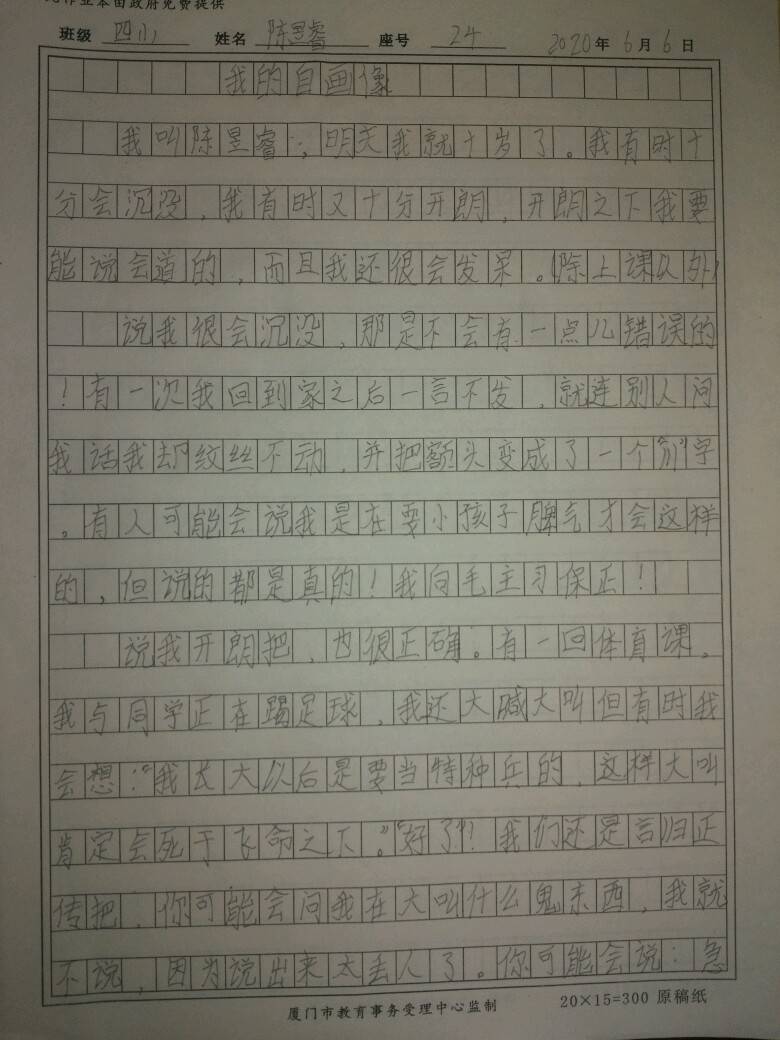 作业本由政府免费提供
班级 四(1) 姓名 陈昱睿 座号 24 2020年6月6日
我的自画像
我叫陈昱睿;明天我就十岁了。我有时十
分会沉没,我有时又十分开朗,开朗之下我要
能说会道的,而且我还很会发呆。(除上课以外)
说我很会沉没,那是不会有一点儿错误的
!有一次我回到家之后一言不发,就连别人问
我话我却纹丝不动,并把额头变成了一个“川”字
。有人可能会说我是在耍小孩子脾气才会这样
的,但说的都是真的!我向毛主习保正!
说我开朗把,也很正确。有一回体育课,
我与同学正在踢足球,我还大喊大叫但有时我
会想:“我长大以后是要当特种兵的,这样大叫
肯定会死于飞命之下。”“好了”!我们还是言归正
传把,你可能会问我在大叫什么鬼东西,我就
不说,因为说出来太丢人了。你可能会说:急
厦门市教育事务受理中心监制 20×15=300 原稿纸